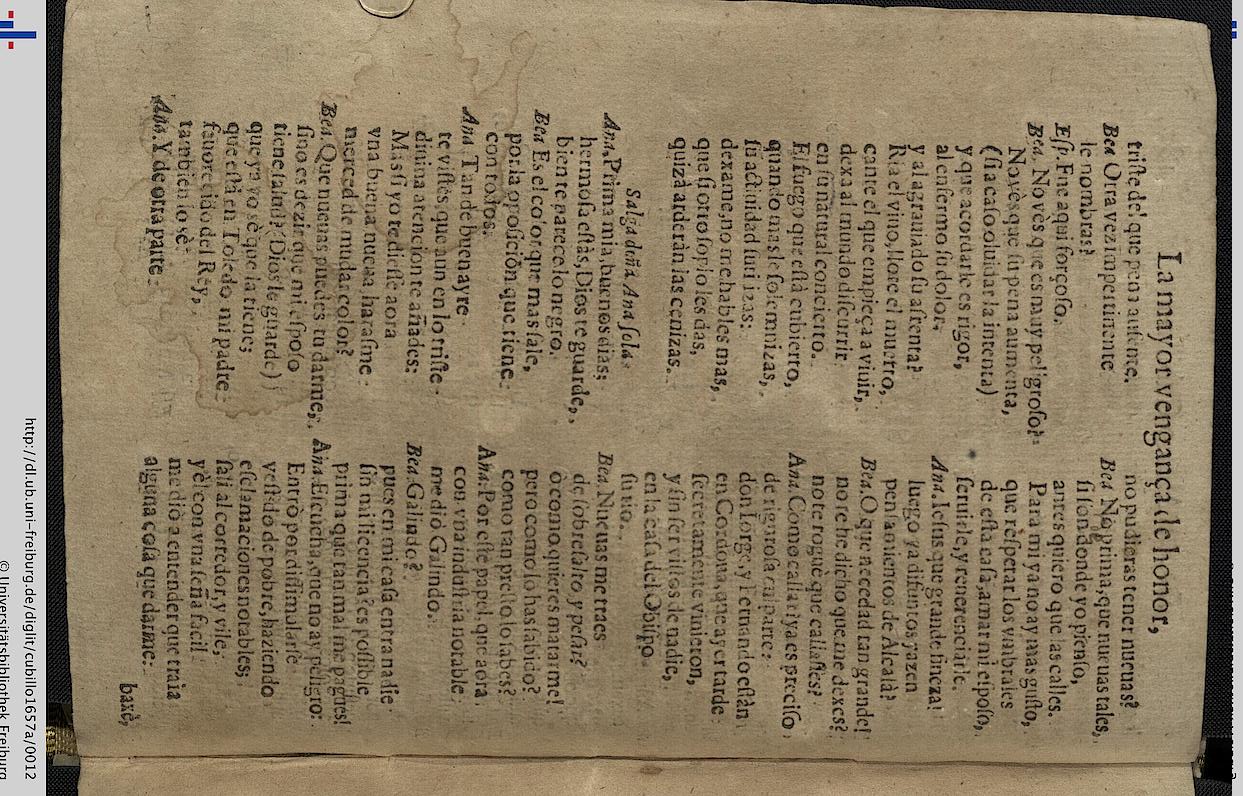 La mayor vengança de honor,
triſte del que pena auſente.
Bea Otra vez impertinente
le nombras?
Eſp. Fue aqui forçoſo.
Bea. No vès que es muy peligroſo?
No vès que ſu pena aumenta,
(ſi acaſo oluidar la intenta)
y que acordarle es rigor,
al enfermo ſu dolor,
y al agrauiado ſu afrenta?
Ria el viuo, llore el muerto,
cante el que empieça a viuir,
dexa al mundo diſcurrir
en ſu natural concierto.
El fuego que eſtà cubierto,
quando mas le ſolemnizas,
ſu actiuidad ſutilizas:
dexame, no me hables mas,
que ſi otro ſoplo les das,
quizà arderàn las cenizas.
Salga doña Ana ſola.
Ana. Prima mia buenos dias;
hermoſa eſtàs, Dios te guarde,
bien te parece lo negro.
Bea Es el color que mas ſale,
por la opoſicion que tiene
con todos.
Ana Tan de buen ayre
te viſtes, que aun en lo triſte
diuina atencion te añades:
Mas ſi yo te dieſſe aora
vna buena nueua, haraſme
merced de mudar color?
Bea. Que nueuas puedes tu darme,
ſino es dezir que mi eſpoſo
tiene ſalud? (Dios le guarde)
que ya yo sè que la tiene;
que eſtà en Toledo mi padre
fauorecido del Rey,
tambien lo sè.
Ana. Y de otra parte
no pudieras tener nueuas?
Bea No prima, que nueuas tales,
ſi ſon donde yo pienſo,
antes quiero que las calles.
Para mi ya no ay mas guſto,
que reſpetar los vmbrales
de eſta caſa, amar mi eſpoſo,
ſeruirle, y reuerenciarle.
Ana. Ieſus que grande fineza!
luego ya difuntos yazen
penſamientos de Alcalà?
Bea. O que necedad tan grande!
no te he dicho que me dexes?
no te roguè que callaſſes?
Ana Como callar? ya es preciſo
de rigoroſa en parte:
don Iorge, y Fernando eſtàn
en Cordoua, que ayer tarde
ſecretamente vinieron,
y ſin ſer viſtos de nadie,
en la caſa del Obiſpo
ſu tio.
Bea Nueuas me traes
de ſobreſalto, y peſar?
ò como quieres matarme!
pero como lo has ſabido?
como tan preſto lo ſabes?
Ana. Por eſte papel que aora
con vna induſtria notable
me diò Galindo.
Bea. Galindo?
pues en mi caſa entra nadie
ſin mi licencia? es poſſible
prima que tan mal me pagues!
Ana. Eſcucha, que no ay peligro:
Entrò por diſſimularſe
veſtido de pobre, haziendo
eſclamaciones notables;
ſali al corredor, y vile,
y èl con vna ſeña facil
me diò a entender que traìa
alguna coſa que darme:
baxè,
http://dl.ub.uni-freiburg.de/diglit/cubillo1657a/0012
© Universitätsbibliothek Freiburg